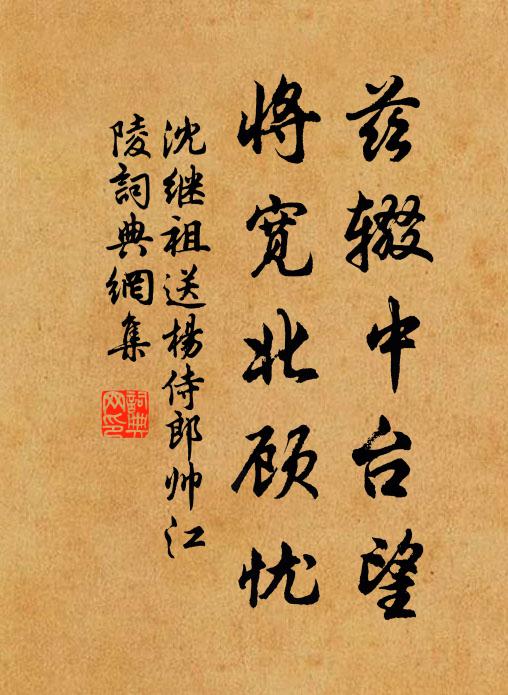 兹辍中台望
将宽北顾忧
沈继祖送杨侍郎帅江
陵词典网集
詞典网印